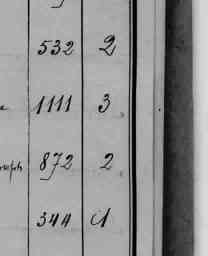 532 2
1111 3
872 2
344 1